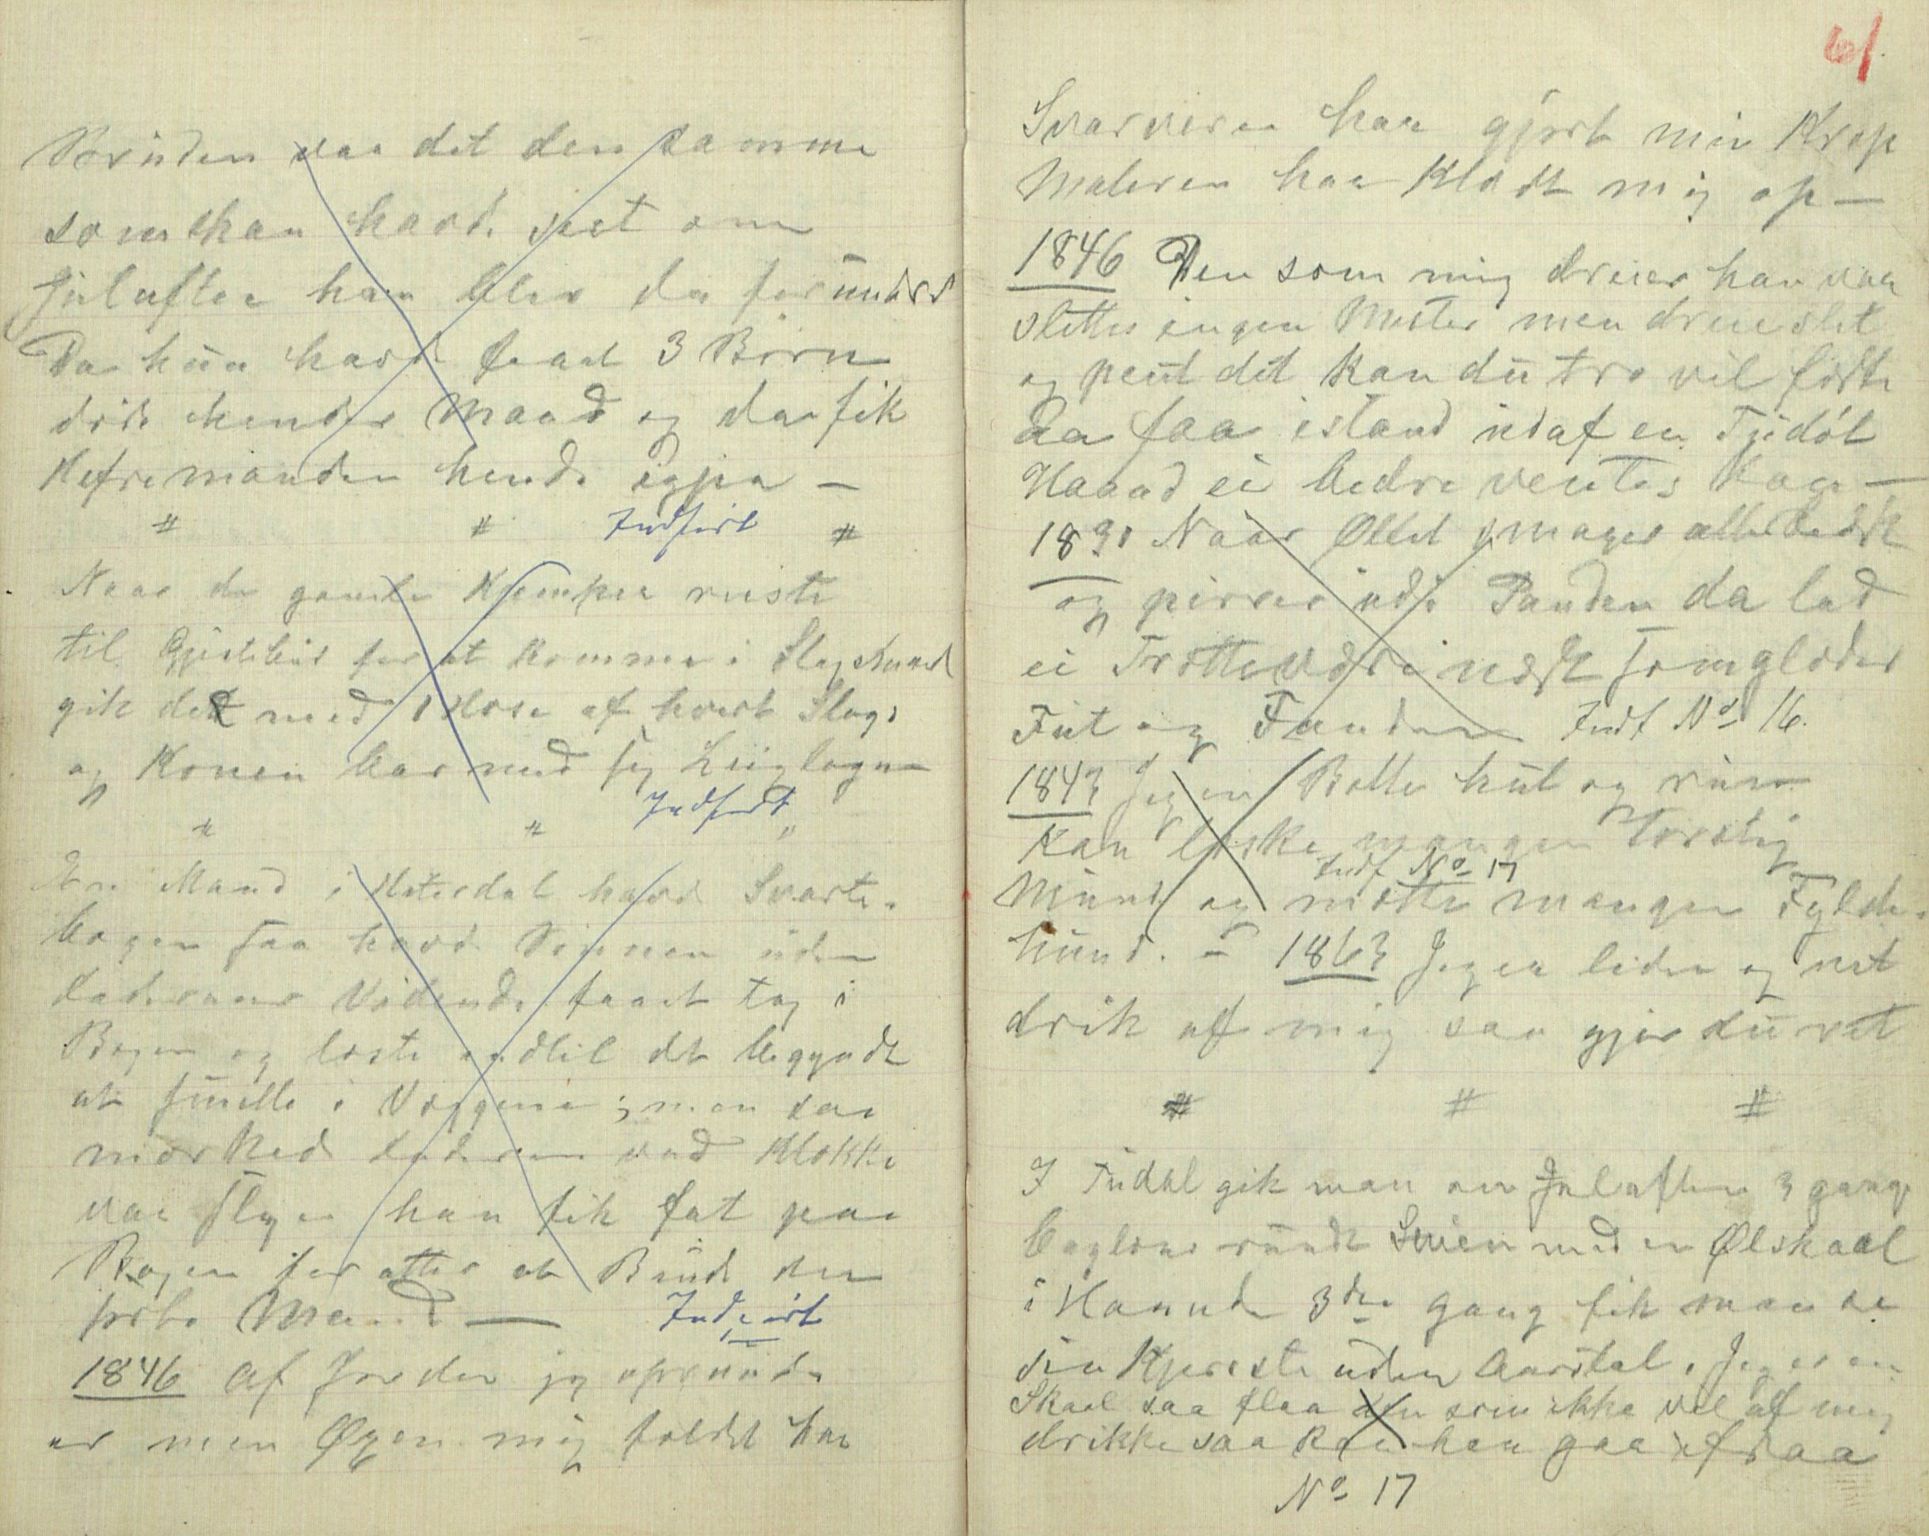 Bruden var det den samme
som han havde seet om
Julaften han blev da forundret
Da hun havde faaet 3 Børn
døde hendes Mand og da fik
Hefremanden hende igjen —
# # Indført #
Naar de gamle Kjemper reiste
til Gjestebud for at komme i Slagsmaal
gik det med 1 Hose af hvert Slags
og Konen bar med sig Liiglagen
# # Indført "
En Mand i Hiterdal havde Svarte-
bogen saa havde Sønnen uden
Faderens Vidende faaet tag i
Bogen og læste indtil det begyndte
at smelle i Væggene; men saa
mærkede Faderen vad Klokke
var slagen han fik fat paa
Bogen for atter at Binde den
Mand — Indført
1846 af Jorden jeg oprunden
er men Øxen mig fældet har
6/
Svarveren har gjort min Krop
Maleren har Klædt mig op —
1846 Den som mig dreier han var
slettes ingen Mester men dreie slet
og peut det kan du tro vil første
Aa faa istand ud af en Tudøl
Haand ei bedre ventes kan —
1890 Naar Øllet smager allerbedst
og pirrer udi Panden da lad
ei Trætte være nest som glæder
Fut og Fanden Indf No 16.
1843 Jeg er Bolle hul og rund
Kan læske mangen Tørstig
Indf No 17
Mund og mætte mangen Fylde-
hund. — 1863 Jeg er liden og net
drik af mig saa gjør du ret
# # #
I Tudal gik man om Julaften 3 gange
baglens rundt Stuen med en Ølskaal
i Haanden 3die gang fik man se
sin Kjereste uden Aarstal. Jeg er en
Skaal saa flaa den som ikke vil af mig
drikke saa kan han gaa ifraa
No 17